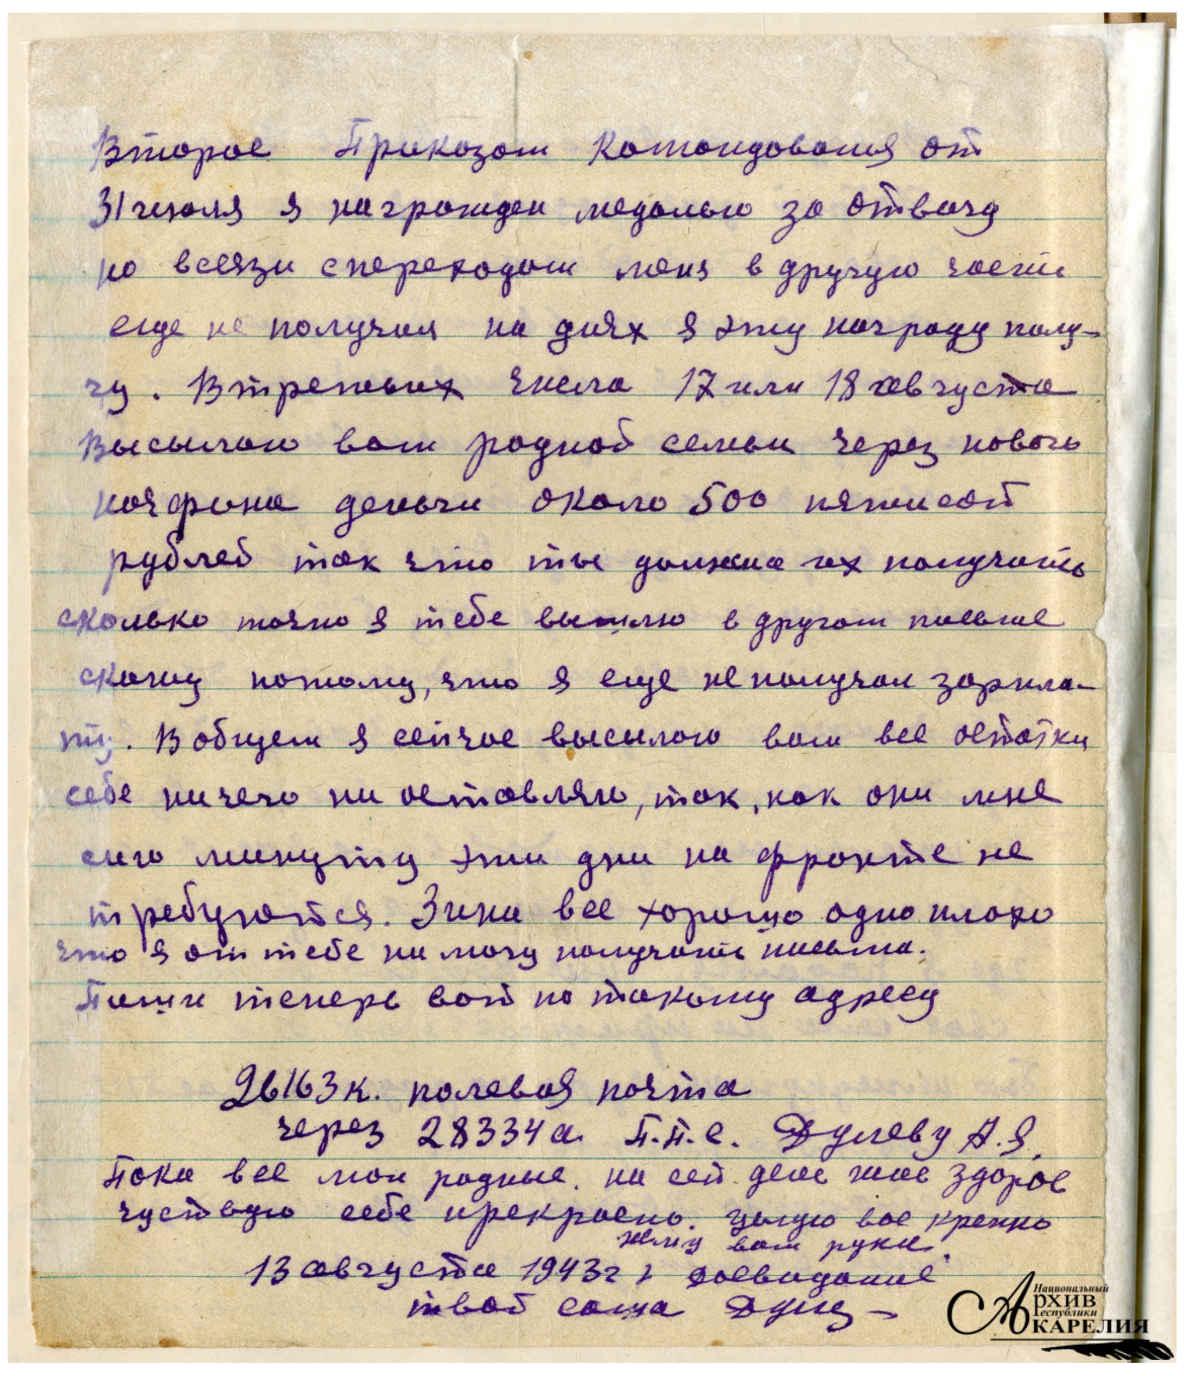 Второе Приказом Командования от
31 июля я награжден медалью за отвагу
но всвязи спереходом меня в другую часть
еще не получал на днях я эту награду полу-
чу. Втретьих числа 17 или 18 августа
высылаю вам родной семьи через нового
начфина деньги около 500 пятисот
рублей так что ты должна их получить
сколько точно я тебе вышлю в другом письме
скажу потому, что я еще неполучал зарпла-
ту. Вобщем я сейчас высылаю вам все остатки
себе ничего ни оставляю, так, как они мне
сию минуту эти дни на фронте не
требуются. Зина все хорошо одно плохо
что я от тебе ни могу получить письма.
Пиши теперь вот по такому адресу
26163к. полевая почта
через 28334а. П.П.С. Дулеву А.Я.
Пока все мои родные. на сей день жив здоров
чуствую себе прекрасно. целую вас крепко
жму вам руки.
13 августа 1943г досвидание
твой саша
Национальный
Архив
Республики
Карелия